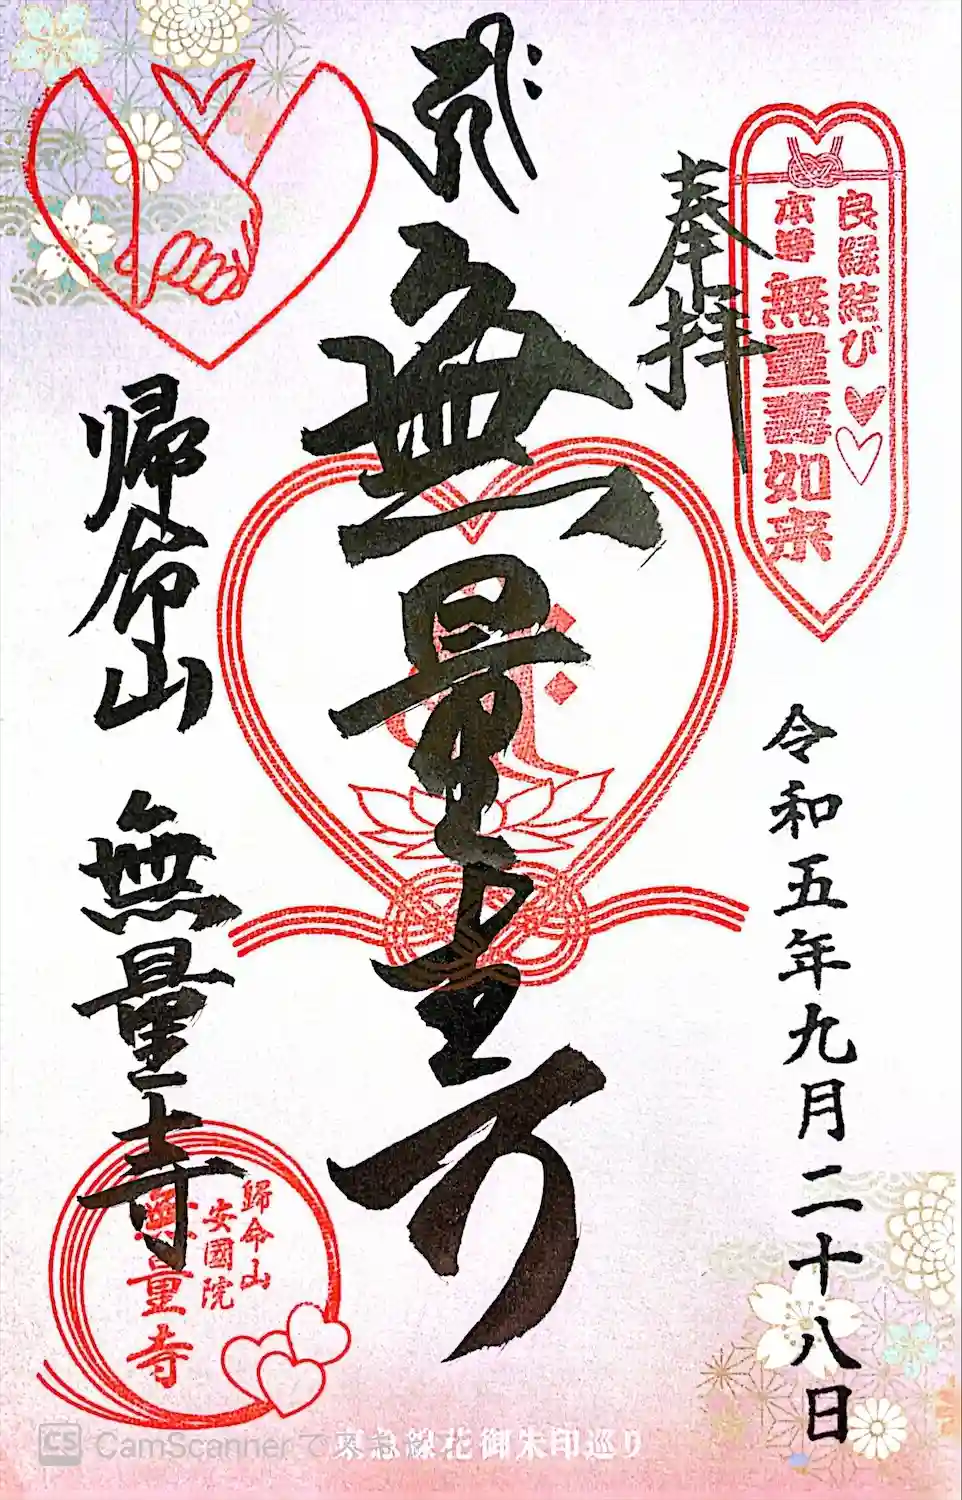 良縁結び
本尊 無量壽如来
奉拝
令和五年九月二十八日
無量壽
帰命山 無量寺
歸命山
安國院
無量寺
東急線花御朱印巡り
CS CamScanner で